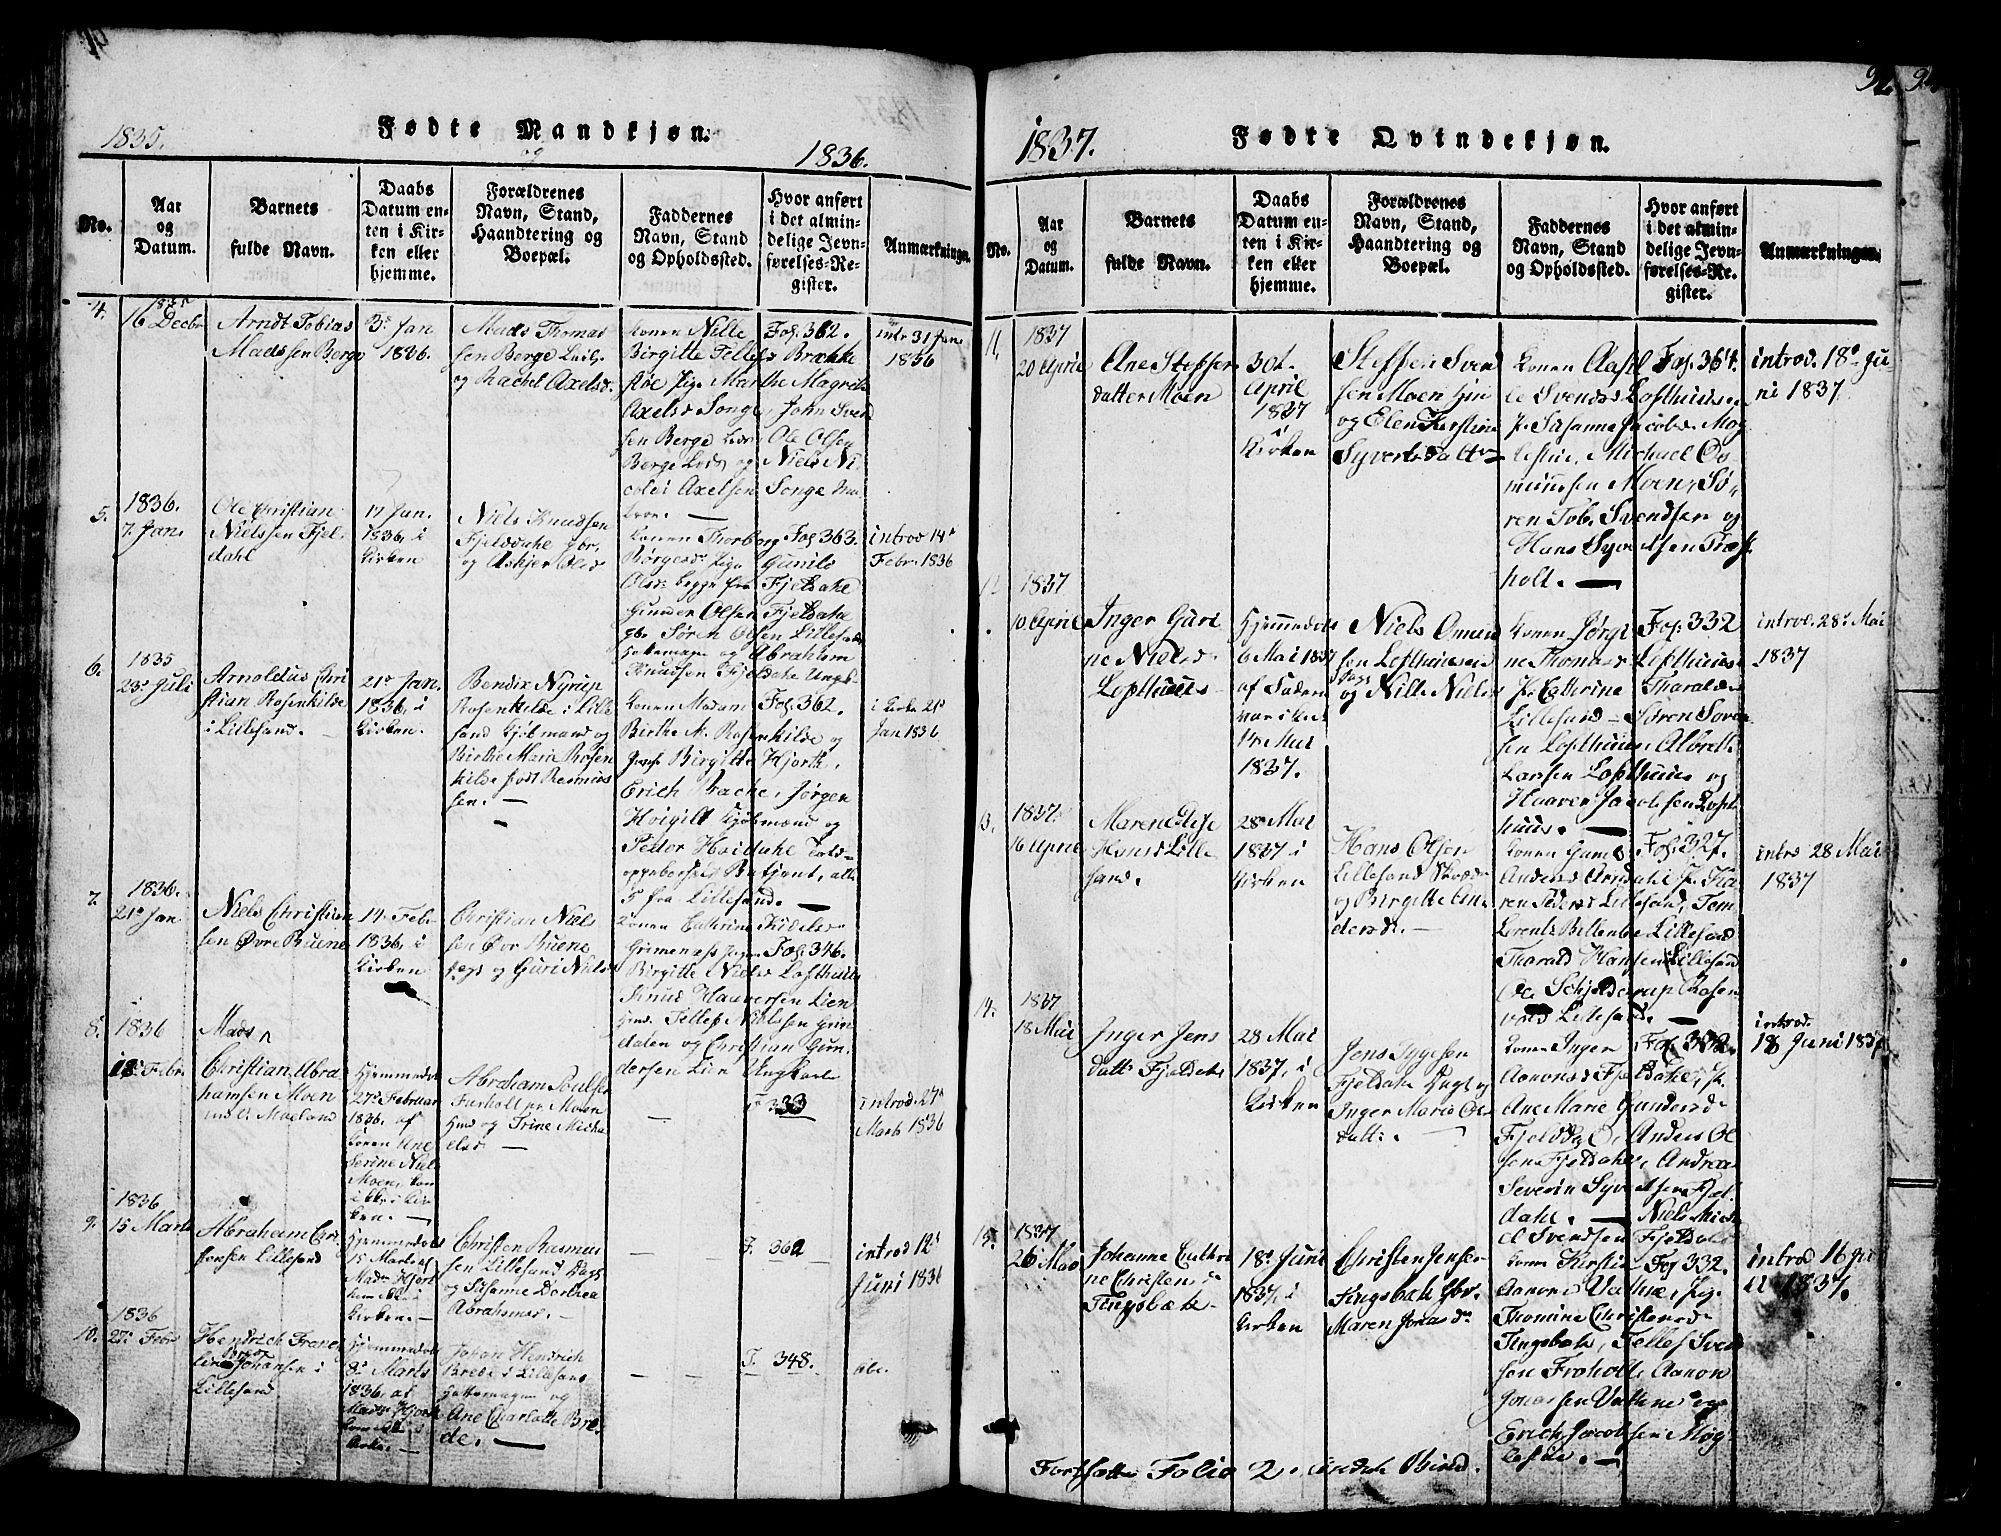 1835. Fødte Mandkjøn.
og
1836.
No.
Aar
og
Datum.
Barnets
fulde Navn.
Daabs
Datum en-
ten i Kir-
ken eller
hjemme.
Forældrenes
Navn, Stand,
Haandtering og
Boepæl.
Faddernes
Navn, Stand
og Opholdssted.
Hvor anført
i det almin-
delige Jevn-
førelses-Re-
gister.
Anmærkninger.
4.
1835
16 Decbr
Arndt Tobias
Madssen Berge
3d Jan
1836.
Mads Thomas
sen Berge
og Rachel Axelsd.
Konen Nille
Birgitte Tellefsd Brække
støe Pige Marthe Magrete
Axelsd Songe, John Svend
sen Berge Ole Olsen
Berge og Niels Ni
colai Axelsen Songe
Fol. 362.
intr 31 Jan
1836
5.
1836.
7. Jan.
Ole Christian
Nielssen Fjel-
dahl
17 Jan.
1836. i
Kirken
Niels Knudsen
Fjeldahl
og Askjer Olsd
Konen Thorborg
Børgesd. Pige Gunild
Olsd. begge fra Fjeldahl
Gunder Olsen Fjeldahl
Søren Olsen Lillesand
Hattemager og Abraham
Knudsen Fjeldahl Ungk.
Fol 363.
introd 14d
Febr. 1836
6.
1835
23d Juli
Arnoldus Chri
stian Rosenkilde
i Lillesand.
21d Jan.
1836. i
Kirken.
Bendix Nyrup
Rosenkilde i Lille
sand Kjøbmand og
Birthe Marie Rosen
kilde født Rasmus
sen.
Konen Madam
Birthe M. Rosenkilde og
Jomf. Birgitte Hjorth,
Erich Brache, Jørgen
Hoigilt Kjøbmænd og
Peder Heidahl Told-
oppebørsels Betjent, alle
5 fra Lillesand.
Fol. 362.
i Kirke 21d
Jan 1836
7.
1836.
21d Jan
Niels Christian
sen Øvre Ruene
14. Febr
1836. i
Kirken
Christian Niels
sen Øvr Ruene
og Guri Nielsd
Konen Cathrine Kidelsd
Grimenæs Pigen
Birgitte Nielsd Lofthuus
Knud Haaversen Lien
Tellef Nielssen Grin
dalen og Christian Gun
dersen Lien Ungkarle
Fol. 346.
8.
1836
18d Febr.
Mads
Christian Abra
hamsen Moen
Hjemmedøbt
27d Februar
1836. af
Konen Ane
Serine Niels
Moen, kom
ikke i Kir
ken.
Abraham Poulsen
Moen
og Trine Micha
elsd
F. 333
introd. 27d
Marts 1836
9.
1836
15 Marts
Abraham Chri
stensen Lillesand
Hjemmedøbt
15 Marts af
Mad. Hjort
Kirken.
Christen Rasmus
sen Lillesand
og Susanne Dorthea
Abrahamsd.
F. 362
introd 12d
Juni 1836
10.
1836
27d Febr
Hendrich Franc
Johansen i
Lillesand
Hjemmedøbt
8d Marts
1836. af
Mad. Hjort
Johan Hendrich
Brede i Lillesand
Hattemager og
Ane Charlotte Bre
de.
F. 348.
1837. Fødte Qvindekjøn.
92
No.
Aar
og
Datum.
Barnets
fulde Navn.
Daabs
Datum en-
ten i Kir-
ken eller
hjemme.
Forældrenes
Navn, Stand,
Haandtering og
Boepæl.
Faddernes
Navn, Stand
og Opholdssted.
Hvor anført
i det almin-
delige Jevn-
førelses-Re-
gister.
Anmærkninger.
11.
1837
20 April
Ane Steffens
datter Moen
30t
April
1837
i
Kirken
Steffen Svend
sen Moen
og Elen Kirstine
Syvertsdatter
Konen Aasil
le Svendsd Lofthuus
P. Susanne Jacobsd. Møg
lestue, Michael Os
mundsen Moen, Sø-
ren Tob. Svendsen og
Hans Syvertsen Træf
holt.
Fol. 364.
introd. 18d Ju-
ni 1837.
12
1837
10 April
Inger Guri
ne Nielsd.
Lofthuus
Hjemmedøbt
6 Mai 1837
af Faderen
var i Kirken
14 Mai
1837.
Niels Omund
sen Lofthuus
og Nille Nielsd
Konen Jørgi
ne Thomasd Lofthuus
P. Cathrine Tharalds.
Lillesand Søren Soren
sen Lofthuus, Albret
Larsen Lofthuus og
Haaver Jacobsen Loft
huus.
Fol. 332
introd. 28d Mai
1837
13.
1837.
16 April
Maren Elise
Hansd Lille
sand.
28d Mai
1837 i
Kirken
Hans Olsen
Lillesand
og Birgitte An
dersd.
Konen Gunild
Anders P. Ka
ren Pedersd Lillesand, Tom
Lorentz Lillesand
Tharald Hansen Lillesand
Ole Schjelderup Rosen
vold Lillesand.
Fol. 327.
introd 28 Mai
1837
14.
1837
18 Mai
Inger Jens
datt. Fjeldahl
28 Mai
1837. i
Kirken
Jens Tygesen
Fjeldahl og
Inger Marie Ols
datt.
Konen Inger
Aanonsd Fjeldahl, P.
Ane Marie Gundersd
Fjeldal, Anders Ol
sen Fjeldahl, Andreas
Severin Syvertsen Fjel
dahl. Niels Mich
el Svendsen Fjeldahl
introd.
18 Juni 1837
15.
1837
26 Mai
Johanne Cathri
ne Christens d.
Tingsbæk
18d Juni
1837. i
Kirken
Christen Jensen
Tingsbæk
Maren Jonasd.
Konen Kirstine
Aanonsd Vathne, Pig.
Thomine Christensd.
Tingsbæk, Tellef Svend
sen Froholt Aanon
Jonassen Vathne og
Erich Jacobsen Møg
lestue.
Fol 332.
introd 16 Ju
li 1837.
Fortsættes Folio 2. Andet Bind.